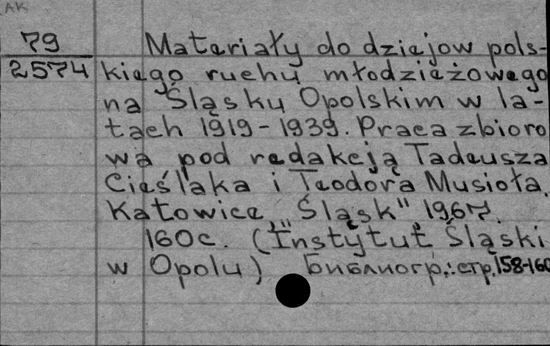 AK
79
2574
Materiały do dziejow pols-
kiego ruehu młodzieżowego
na Śląsku Opolskim w la-
tach 1919-1939. Praca zbioro
wa pod redakcją Tadeusza
Cieślaka i Teodora Musioła.
Katowice, "Śląsk", 1967.
160c. (Instytut Śląski
w Opolu) Библиогр.: стр. 158-160